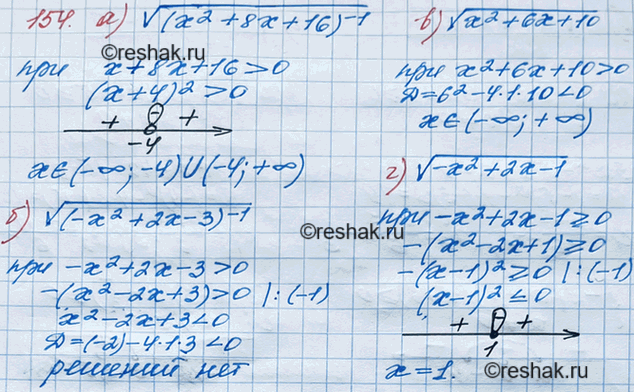 154. а) √(x²+8x+16)⁻¹
©reshak.ru
при x+8x+16>0
(x+4)²>0
+ − +
-4
x∈(-∞;-4)∪(-4;+∞)
б) √(-x²+2x-3)⁻¹
при -x²+2x-3>0
-(x²-2x+3)>0 |:(-1)
x²-2x+3<0
Д=(-2)-4·1·3<0
решений нет
в) √x²+6x+10
при x²+6x+10>0
Д=6²-4·1·10<0
x∈(-∞;+∞)
г) √-x²+2x-1
©reshak.ru
при -x²+2x-1≥0
-(x²-2x+1)≥0
-(x-1)²≥0 |:(-1)
(x-1)²≤0
+ − +
1
x=1.
©reshak.ru